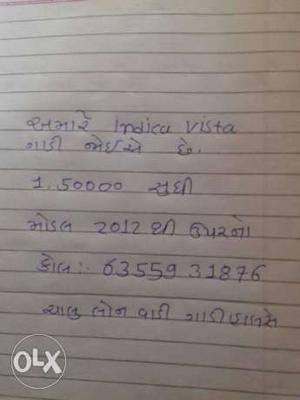 અમારે Indica Vista
ગાડી જોઈએ છે.
1.50000 સુધી
મોડલ 2012 થી ઉપરનો
કોલ:- 63559 31876
ચાલુ લોન વાળી ગાડી હાલસે
OLX